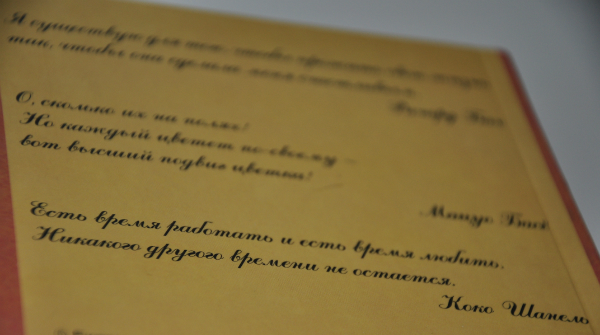 Я существую для того, чтобы
так, чтобы они сделали меня счастливым.
Ричард Бах
О, сколько их на полях!
Но каждый цветет по-своему —
вот высший подвиг цветка!
Мацуо Басё
Есть время работать и есть время любить.
Никакого другого времени не остается.
Коко Шанель